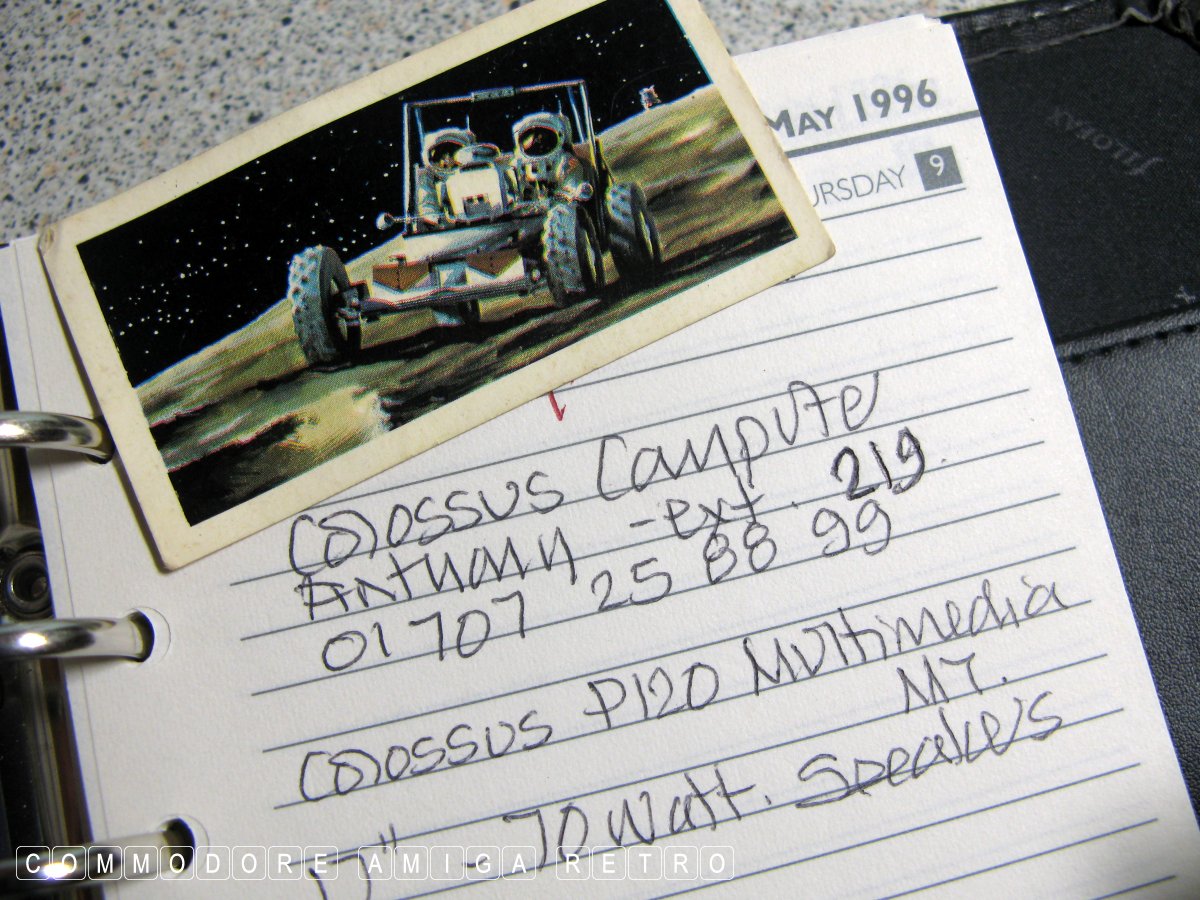 MAY 1996
URSDAY 9
FILOFAX
Colossus Compute
Anthony - ext. 219.
01707 25 88 99
Colossus P120 Multimedia
MT.
70 Watt. Speakers
COMMODORE AMIGA RETRO